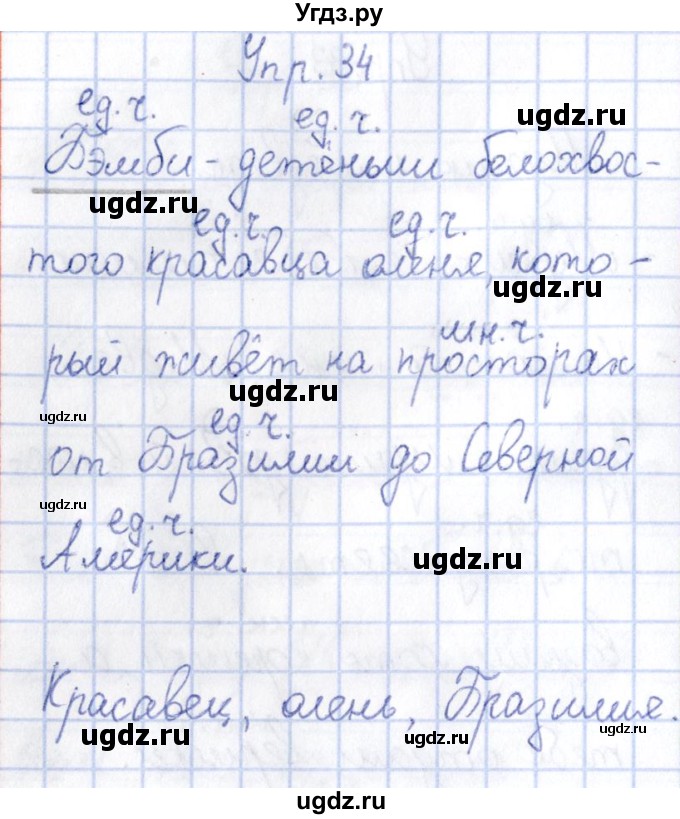 Угдз.ру
Упр. 34
ед. ч. ед. ч.
Бэмби - детёныш белохвос-
ugdz.ru
ugdz.ru
ед. ч. ед. ч.
того красавца оленя, кото-
ugdz.ru
мн. ч.
рый живёт на просторах
ugdz.ru
ugdz.ru
ед. ч.
от Бразилии до Северной
ugdz.ru
ед. ч.
Америки.
ugdz.ru
Красавец, олень, Бразилия.
ugdz.ru ugdz.ru ugdz.ru
ugdz.ru